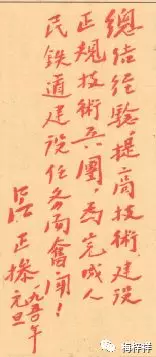 總结经驗提高技術建設
正規技術兵團，為完成人
民鉄道建設任务而奮闘！
吕正操
一九五〇年
元旦
海梓祥